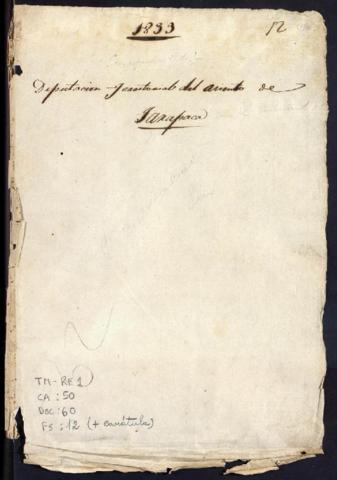 1833
12
Diputacion Territorial del asiento de
Tarapaca
TM-RE1
CA : 50
DOC : 60
FS : 12 (+ carátula)